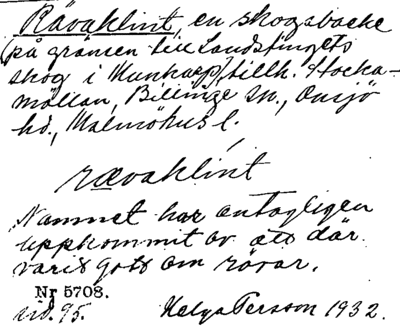 Rävaklint, en skogsbacke
(på gränsen till Landstingets
skog i Munkarp), tillh. Stocka-
möllan, Billinge sn., Onsjö
hd., Malmöhus l.
rævaklint
Namnet har antagligen
uppkommit av att där
varit gott om rävar.
Nr 5708.
sid. 95. Helge Persson 1932.